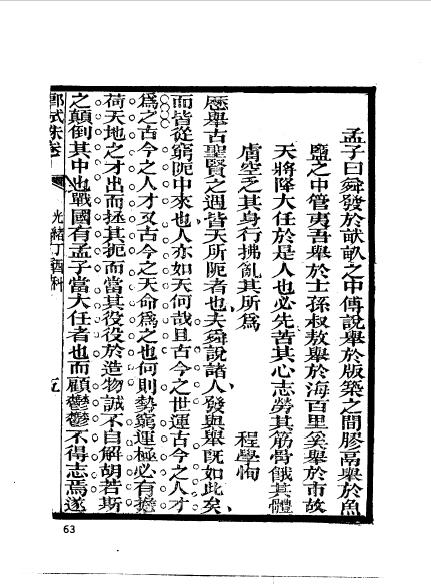 孟子曰舜發於畎畝之中傅說舉於版築之間膠鬲舉於魚
鹽之中管夷吾舉於士孫叔敖舉於海百里奚舉於市故
天將降大任於是人也必先苦其心志勞其筋骨餓其體
膚空乏其身行拂亂其所爲
程學恂
歷舉古聖賢之遇皆天所阨者也夫舜說諸人發與舉旣如此矣
而皆從窮阨中來也人亦如天何哉且古今之世運古今之人才
爲之古今之人才又古今之天命爲之也何則勢窮運極必有擔
荷天地之才出而拯其扼而當其役役於造物誠不自解胡若斯
之顛倒其中也戰國有孟子當大任者也而顧鬱鬱不得志焉遂
鄉試硃卷
光緒丁酉科
五
63